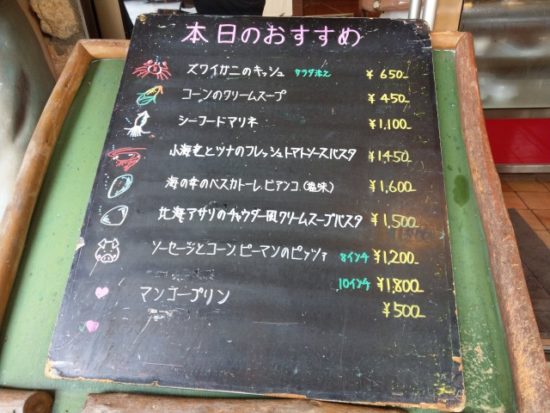 本日のおすすめ
ズワイガニのキッシュ サラダ添え ¥650
コーンのクリームスープ ¥450
シーフードマリネ ¥1,100
小海老とツナのフレッシュトマトソースパスタ ¥1450
海の幸のペスカトーレ、ビアンコ(塩味) ¥1,600
北海アサリのチャウダー風クリームスープパスタ ¥1,500
ソーセージとコーン、ピーマンのピッツァ 8インチ ¥1,200
10インチ ¥1,800
マンゴープリン ¥500